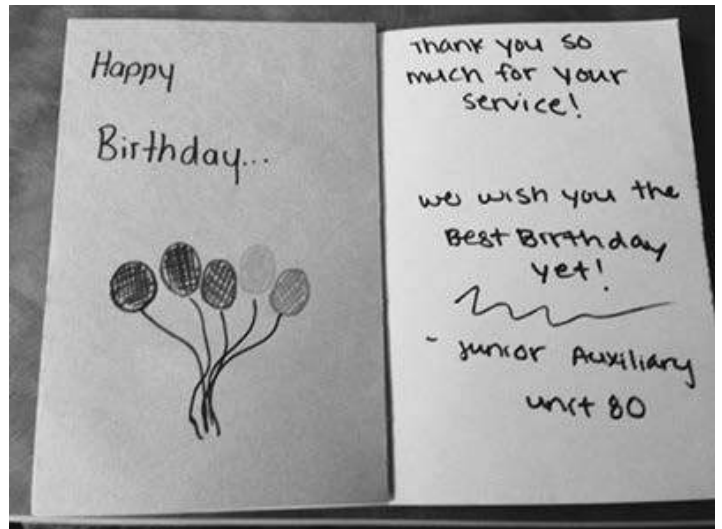 Happy
Birthday...
Thank you so
much for your
service!
we wish you the
Best Birthday
yet!
- Junior Auxiliary
unit 80